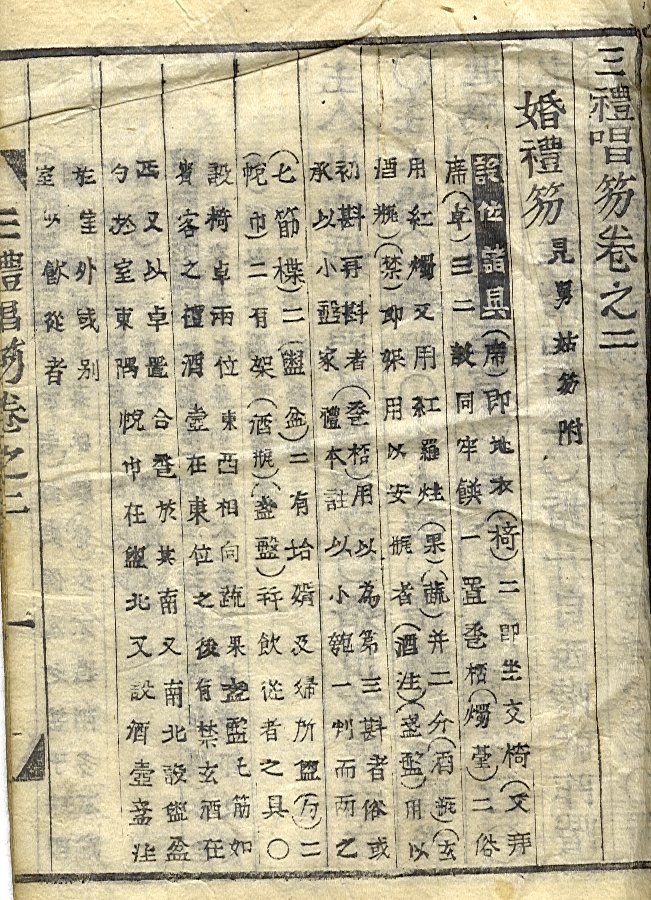 三禮唱笏卷之二
婚禮笏 見舅姑笏附
設位諸具(席)即地衣(椅)二即坐交椅(又拜
席(卓)三二設同牢饌一置卺桮(燭臺)二俗
用紅燭又用紅羅炷(果)(蔬)并二分(酒瓶)(玄
酒瓶)(禁)即架用以安瓶者(酒注)(盞盤)用以
初斟再斟者(卺桮)用以為第三斟者俗或
承以小盤家禮本註以小匏一判而兩之
(匕筯楪)二(盥盆)二有坮婿及婦所盥(巾)二
帨巾)二有架(酒瓶)(盞盤)幷飲從者之具〇
設椅卓兩位東西相向蔬果盞盤匕筯如
賓客之禮酒壺在東位之後有禁玄酒在
西又以卓置合卺於其南又南北設盥盆
勺於室東隅帨巾在盥北又設酒壺盞注
於室外或別
室以飲從者
三禮唱笏卷之二 一